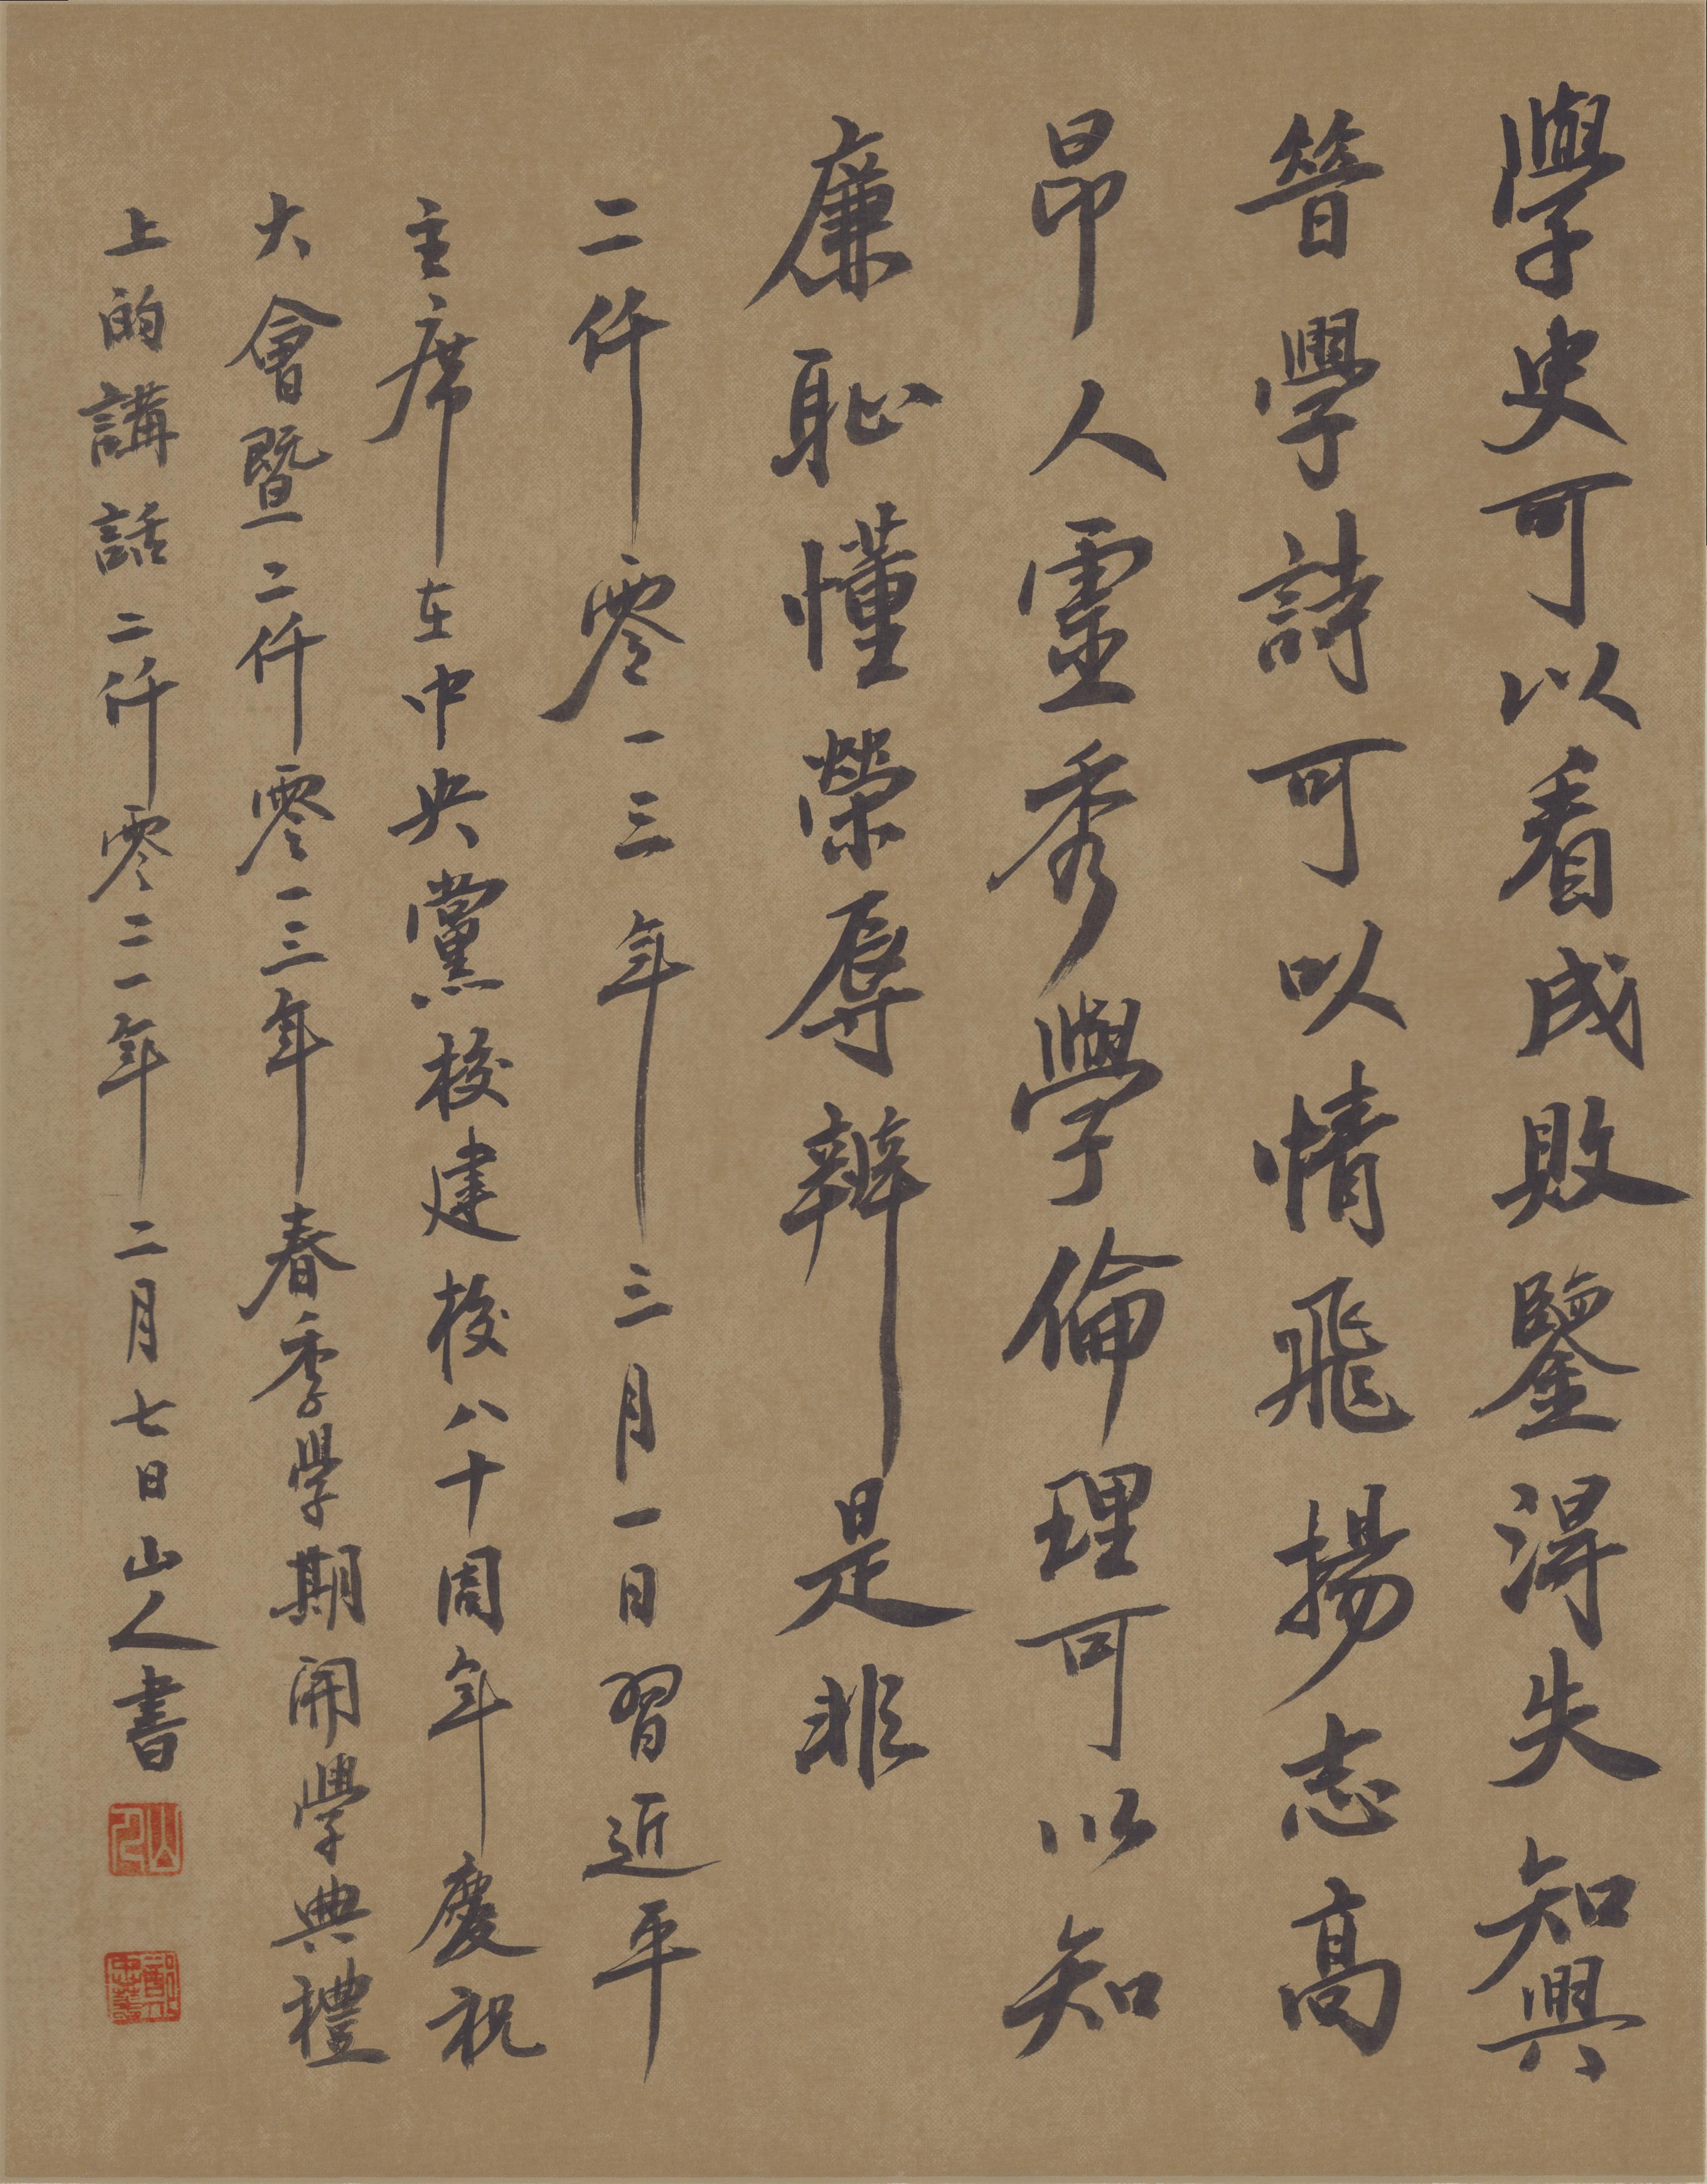 學史可以看成敗鑒得失知興
替學詩可以情飛揚志高
昂人靈秀學倫理可以知
廉恥懂榮辱辨是非
二仟零一三年三月一日習近平
主席在中央黨校建校八十周年慶祝
大會暨二仟零一三年春季學期開學典禮
上的講話二仟零二一年二月七日山人書
山人